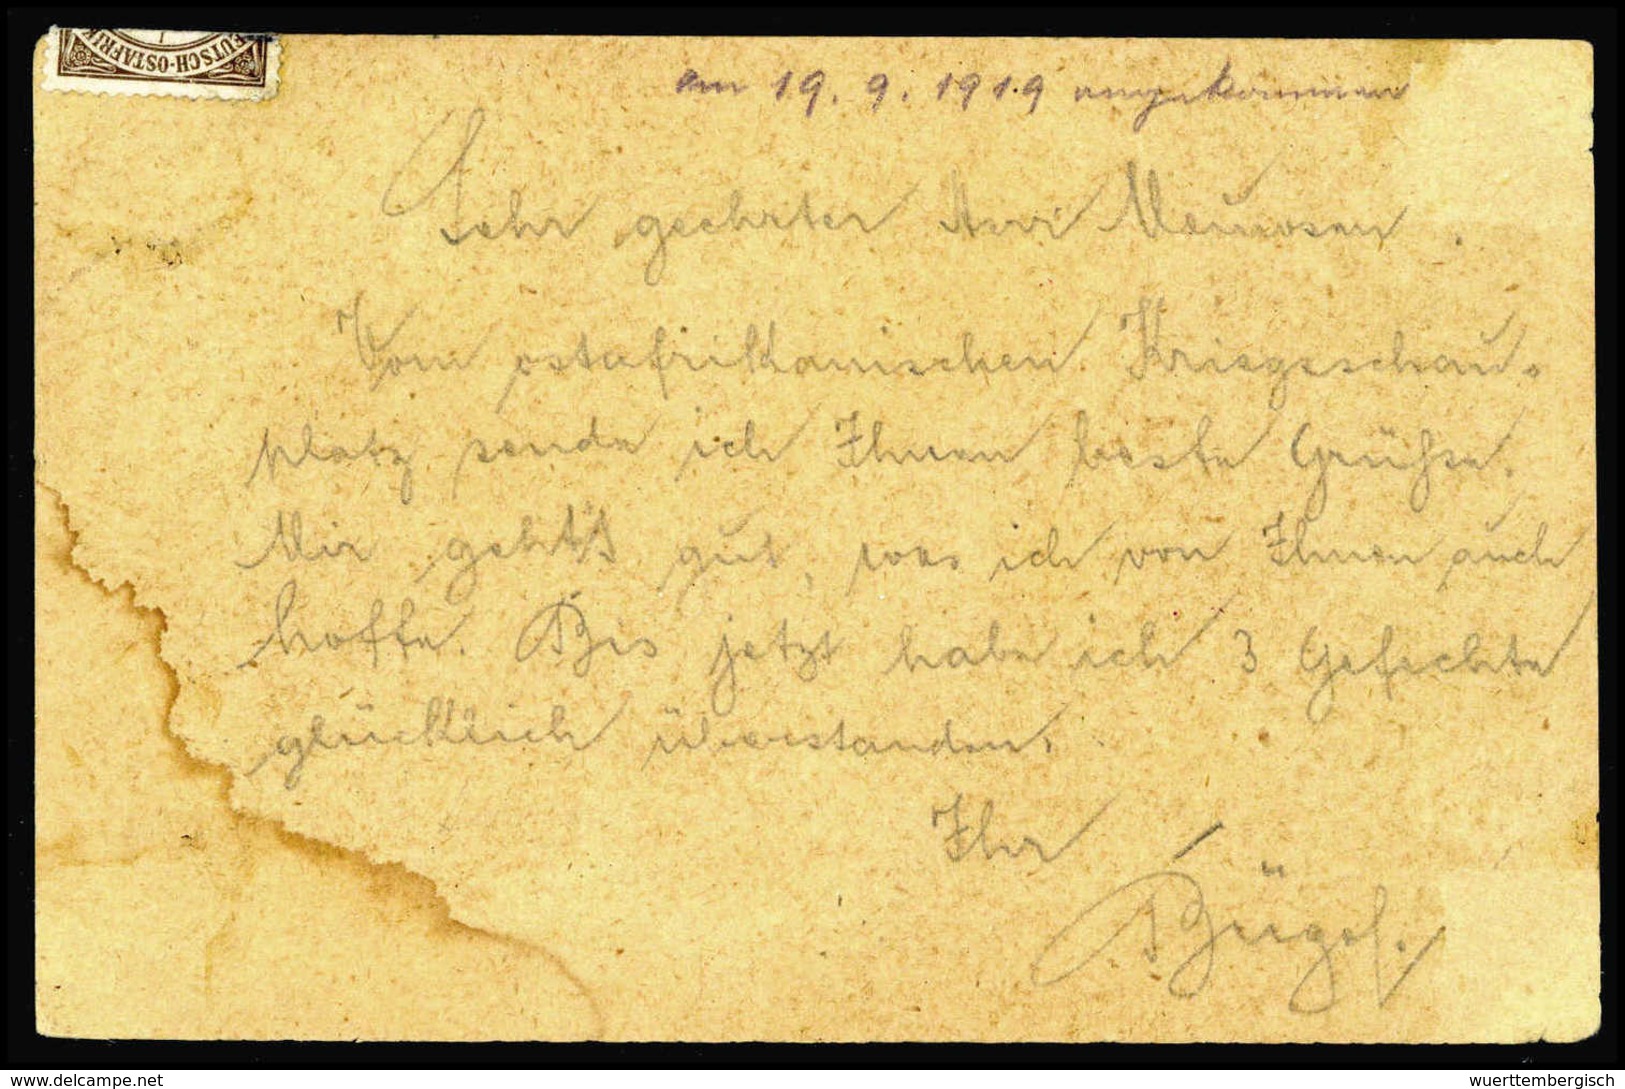 EUTSCH-OSTAFRIK
am 19. 9. 1919 angekommen
Sehr geehrter Herr
Vom ostafrikanischen Kriegsschau-
platz sende ich Ihnen beste Grüße.
Mir geht's gut, was ich von Ihnen auch
hoffe. Bis jetzt habe ich 3 Gefechte
glücklich überstanden.
Ihr
www.wuerttembergisch